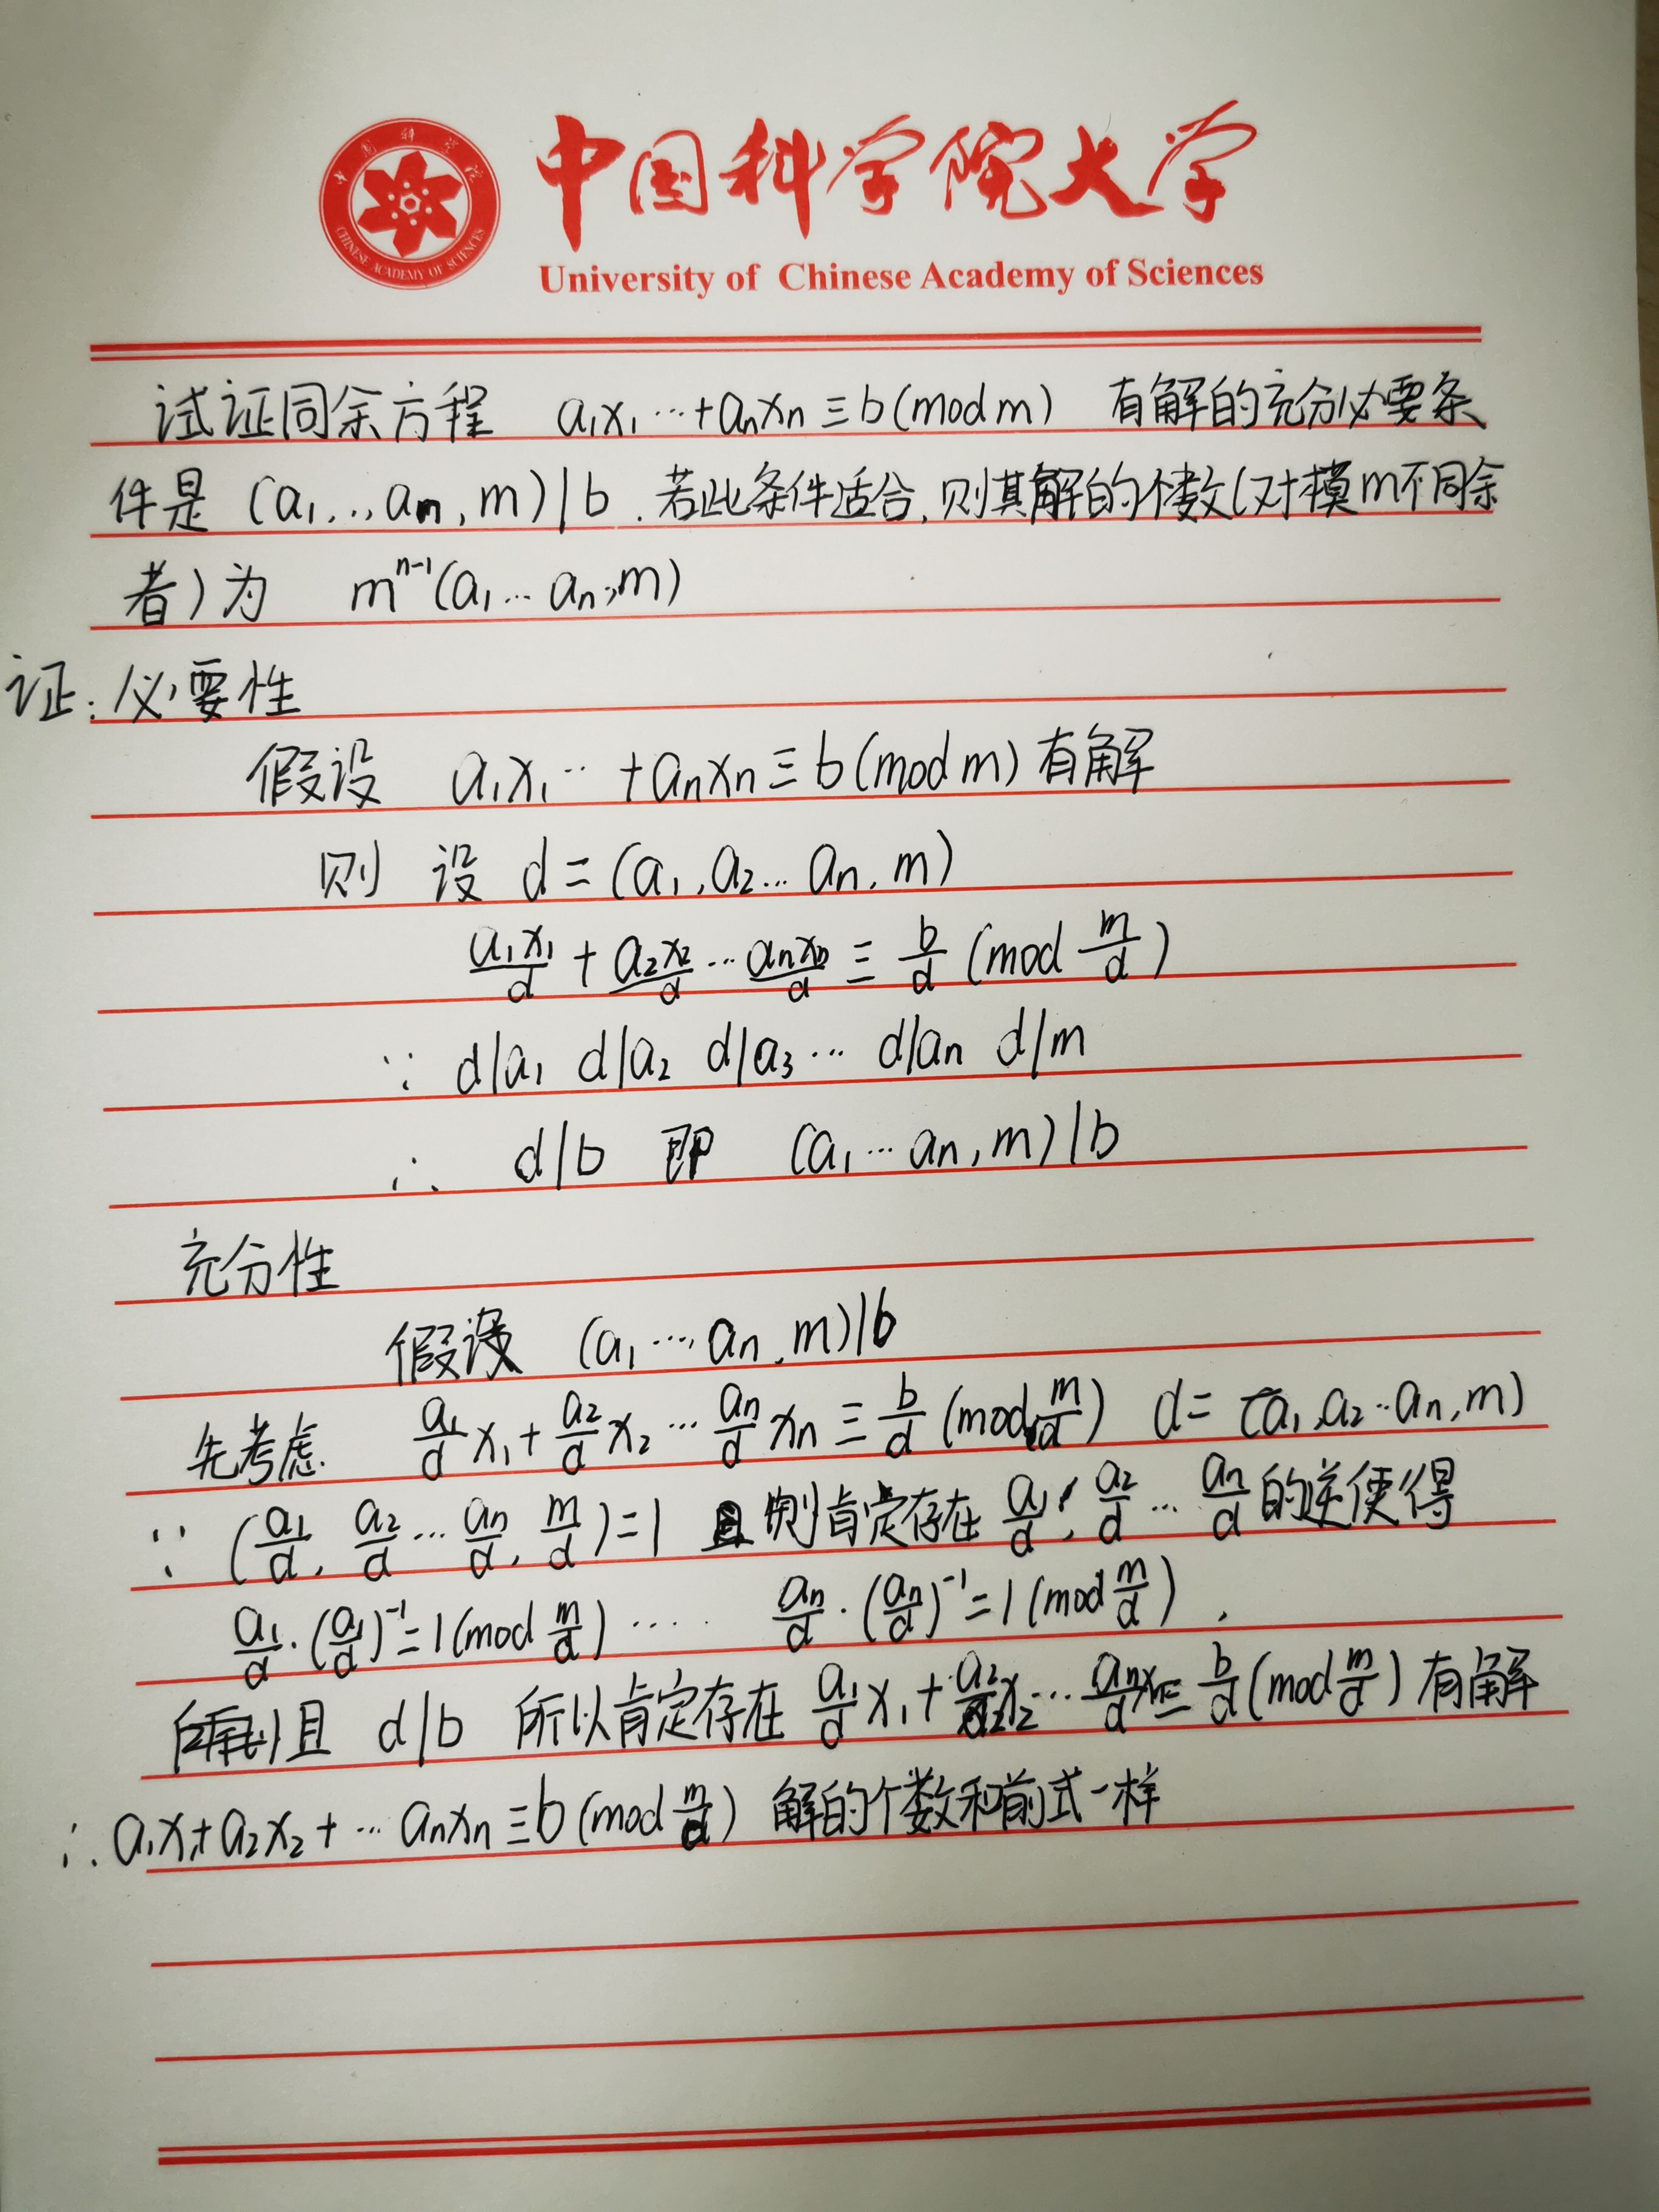 中国科学院大学
CHINESE ACADEMY OF SCIENCES
University of Chinese Academy of Sciences
试证同余方程 a₁x₁ ⋯ + aₙxₙ ≡ b (mod m) 有解的充分必要条
件是 (a₁ ,.., aₙ, m) | b . 若此条件适合, 则其解的个数(对模m不同余
者)为 mⁿ⁻¹(a₁ … aₙ, m)
证: 必要性
假设 a₁x₁ ‥ + aₙxₙ ≡ b (mod m) 有解
则 设 d = (a₁, a₂ … aₙ, m)
a₁x₁/d + a₂x₂/d ⋯ aₙxₙ/d ≡ b/d (mod m/d)
∵ d|a₁ d|a₂ d|a₃ ⋯ d|aₙ d|m
∴ d|b 即 (a₁ ⋯ aₙ, m) | b
充分性
假设 (a₁ ⋯, aₙ, m)|b
先考虑. a₁/d x₁ + a₂/d x₂ ⋯ aₙ/d xₙ ≡ b/d (mod m/d) d = (a₁, a₂ ‥ aₙ, m)
∵ (a₁/d, a₂/d ⋯ aₙ/d, m/d) = 1 且 则肯定存在 a₁/d, a₂/d ⋯ aₙ/d 的逆使得
a₁/d · (a₁/d)⁻¹ = 1 (mod m/d) ⋯⋯ aₙ/d · (aₙ/d)⁻¹ = 1 (mod m/d) ,
且 d|b 所以肯定存在 a₁/d x₁ + a₂/d x₂ ⋯ aₙ/d xₙ ≡ b/d (mod m/d) 有解
∴ a₁x₁ + a₂x₂ + ⋯ aₙxₙ ≡ b (mod m/d) 解的个数和前式一样